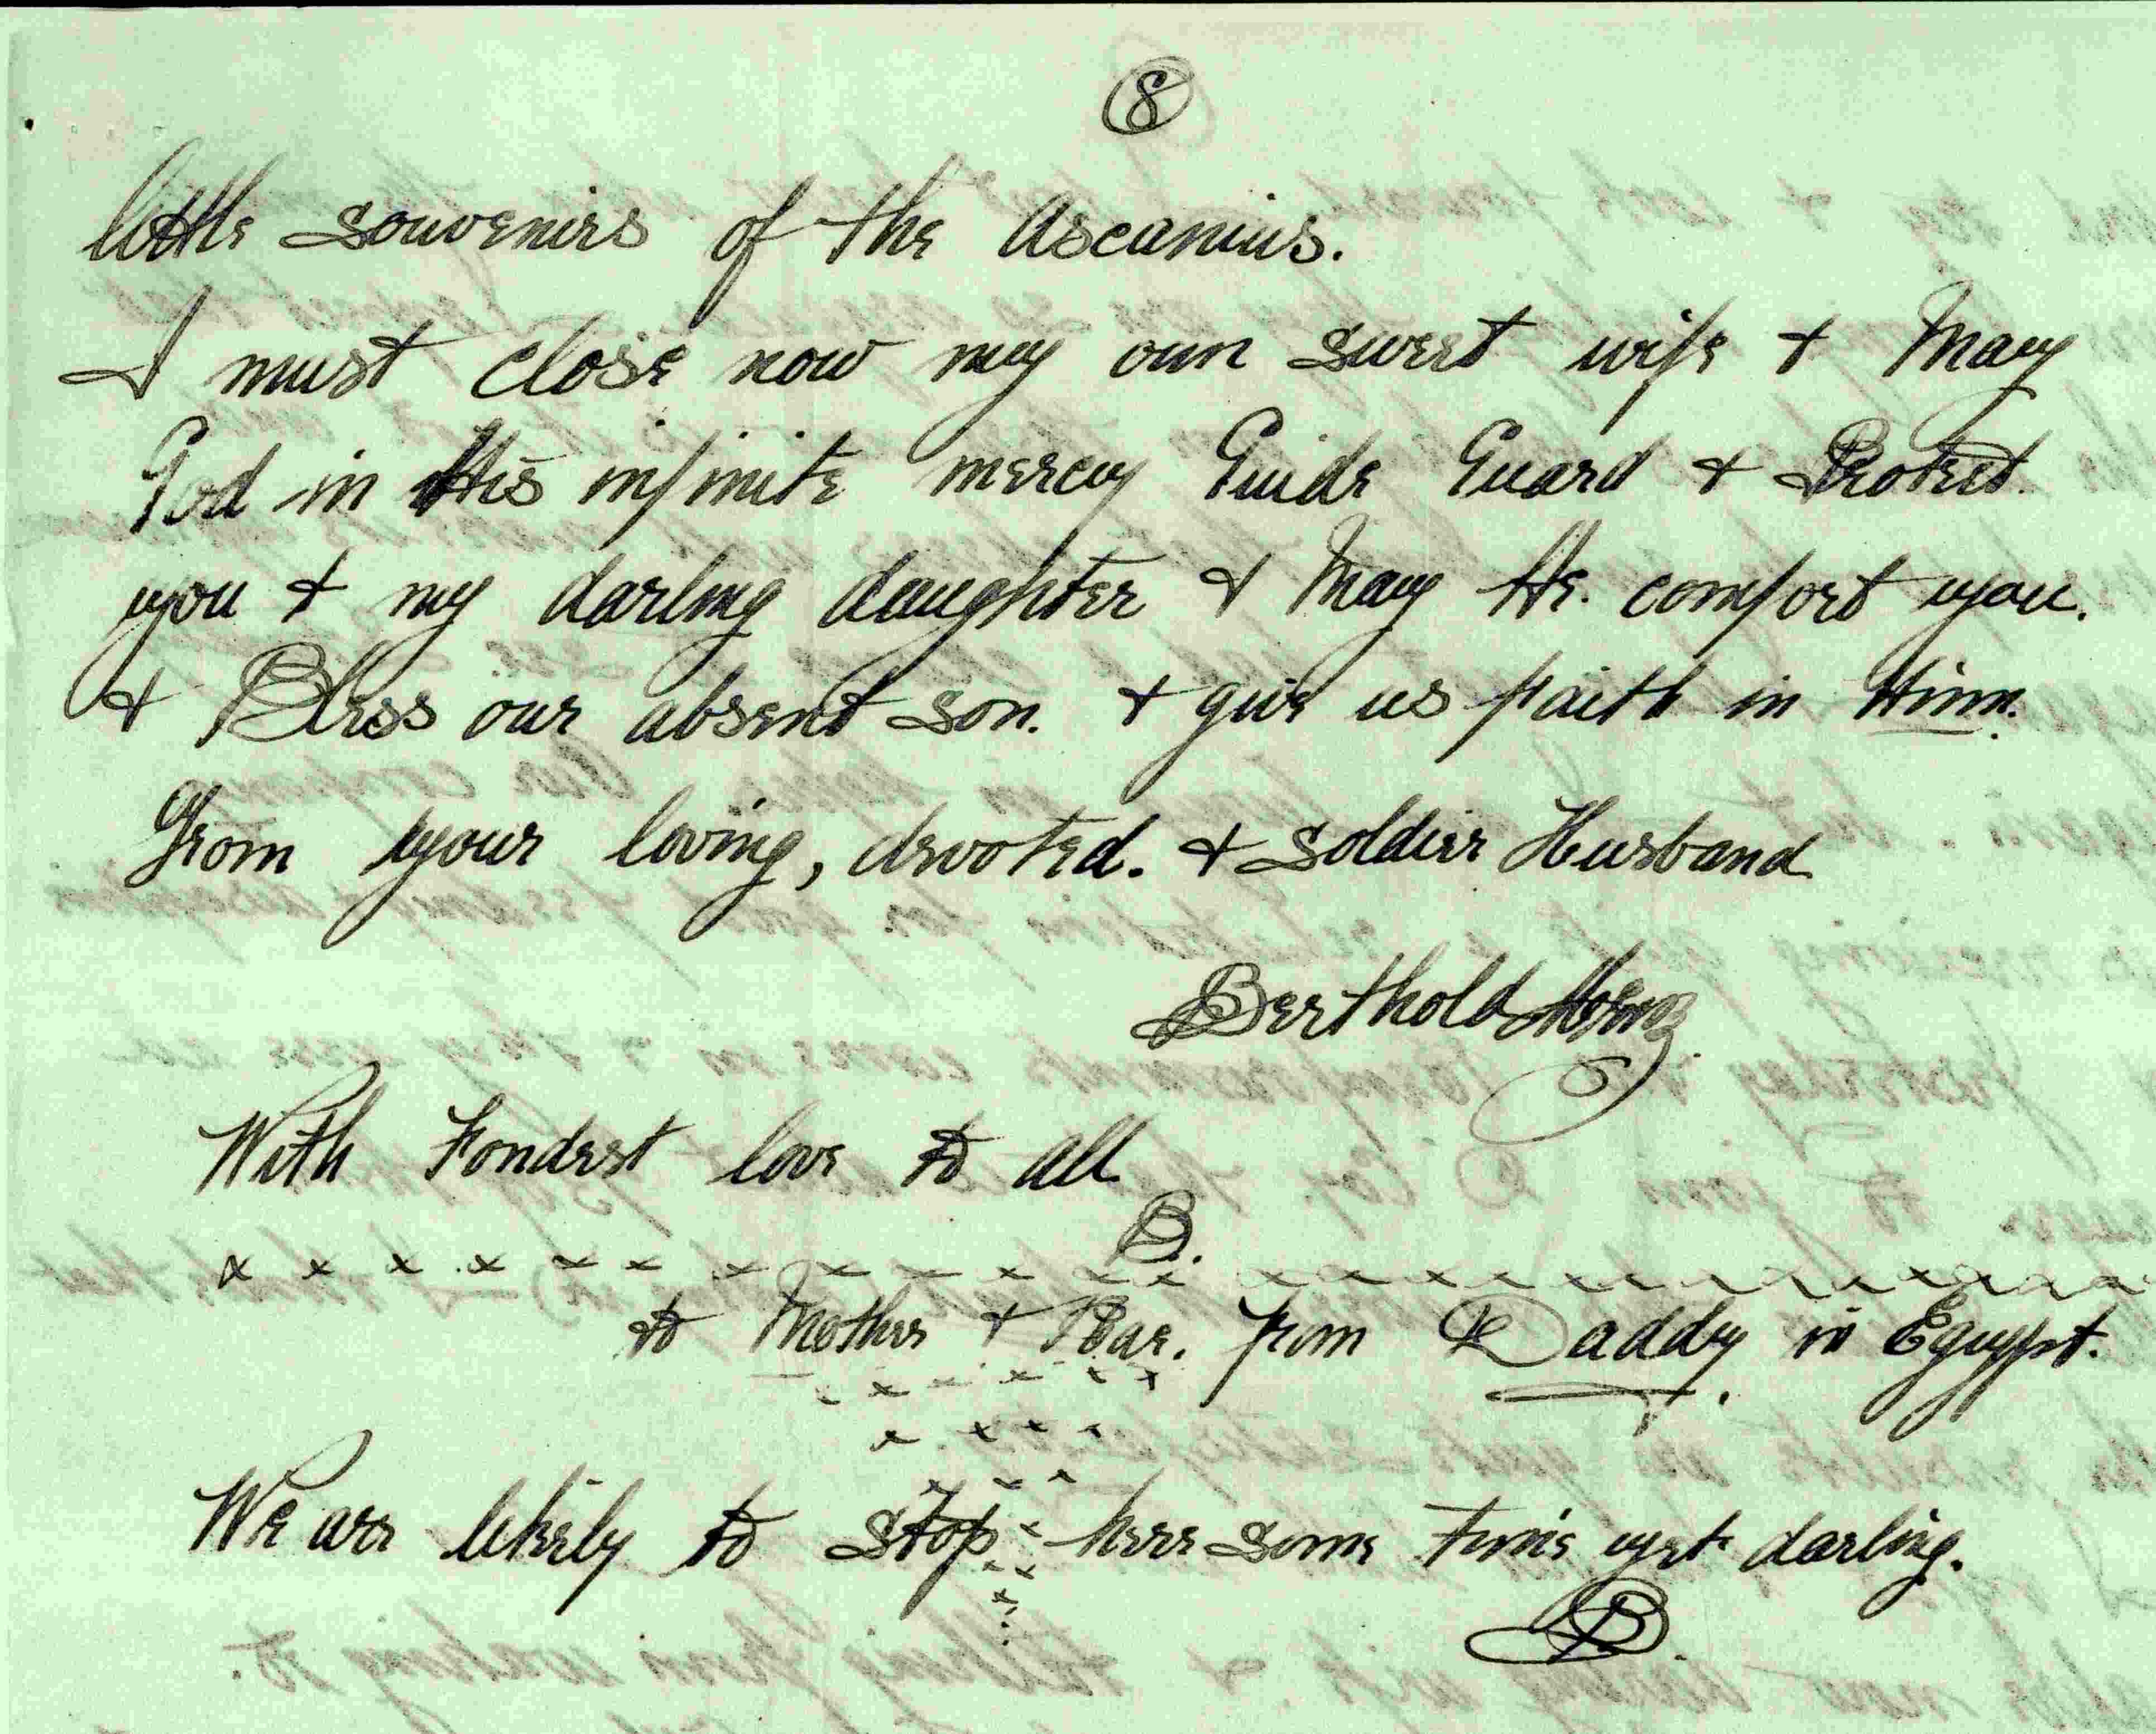 8
little souvenirs of the Ascanius.
I must close now my own sweet wife & May
God in His infinite mercy Guide Guard & Protect.
you & my darling daughter & May He. comfort you.
& Bless our absent son. & give us faith in Him.
From your loving, devoted. & soldier Husband
Berthold
With Fondest love to all
B.
x x x x x x x x x x x x x x x x x x x x x x x
to Mother & Bar. from Daddy in Egypt.
x x x x x x
x x x x
x x x
We are likely to stop here some time yet darling.
B.